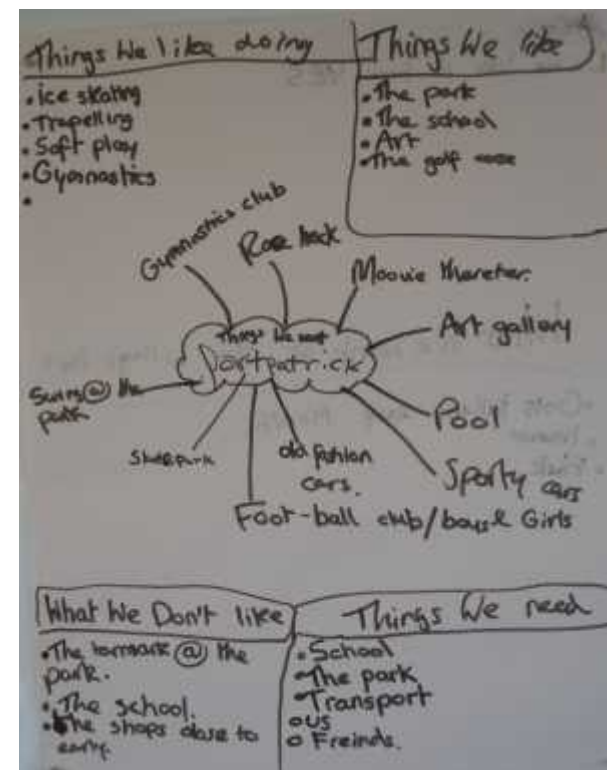 Things We like doing
• ice skating
• Trapelling
• Soft play
• Gymnastics
•
Things We like
• The park
• The school
• Art
• The golf
Gymnastics club
Race track
Moovie thareter.
Art gallery
Things We want
Portpatrick
Swing @ the
park
Pool
Skatepark
old fashion
cars.
Sporty cars
Foot-ball club/boys & Girls
What We Don't like
• The tarmark @ the
park.
• The school.
• The shops close to
early.
Things We need
• School
• The park
• Transport
• US
• Freinds.